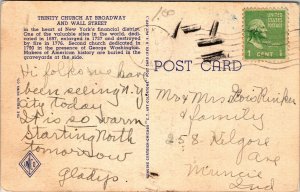 TRINITY CHURCH AT BROADWAY
AND WALL STREET
In the heart of New York's financial district.
One of the valuable sites in the world, dedi-
cated in 1697, enlarged in 1737 and destroyed
by fire in 1776. Second church dedicated in
1790 in the presence of George Washington.
Makers of America's history are buried in the
graveyards at the side.
POST CARD
1 CENT
Hi folks we have
been seeing N.Y
city today
It is so warm
Starting North
tomorrow
Gladys
Mr & Mrs
& Family
258 Kilgore
Ave
Muncie
Ind